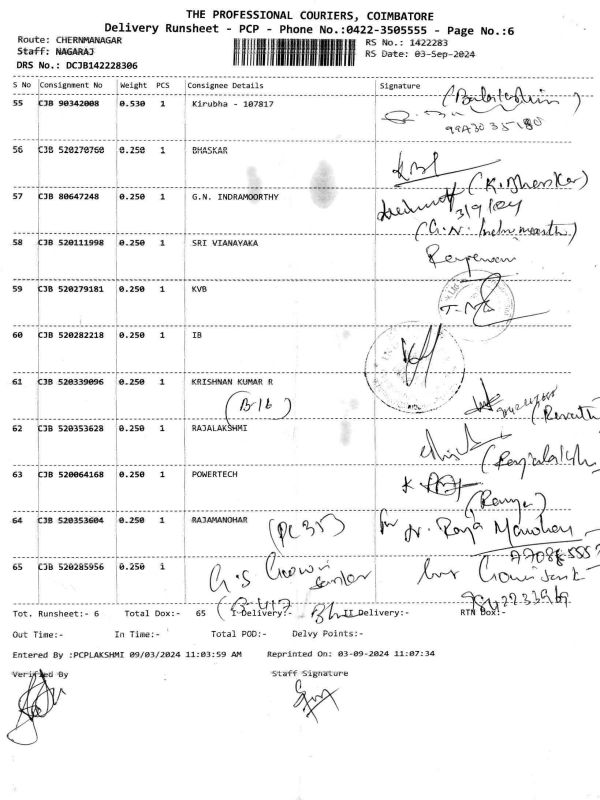 THE PROFESSIONAL COURIERS, COIMBATORE
Delivery Runsheet - PCP - Phone No.:0422-3505555 - Page No.:6
Route: CHERNMANAGAR RS No.: 1422283
Staff: NAGARAJ RS Date: 03-Sep-2024
DRS No.: DCJB142228306
S No Consignment No Weight PCS Consignee Details Signature
55 CJB 90342008 0.530 1 Kirubha - 107817
56 CJB 520270760 0.250 1 BHASKAR
(K. Bhaskar)
57 CJB 80647248 0.250 1 G.N. INDRAMOORTHY
3/9/24
(G.N. Indramoorthy)
58 CJB 520111998 0.250 1 SRI VIANAYAKA
59 CJB 520279181 0.250 1 KVB
60 CJB 520282218 0.250 1 IB
61 CJB 520339096 0.250 1 KRISHNAN KUMAR R
(B-16)
(Revathi
62 CJB 520353628 0.250 1 RAJALAKSHMI
63 CJB 520064168 0.250 1 POWERTECH
(Ramya)
64 CJB 520353604 0.250 1 RAJAMANOHAR (PC 355) for Dr. Raja Manohar
65 CJB 520285956 0.250 1 G.S Gowri Sankar
(B-417
9842233969
Tot. Runsheet:- 6 Total Dox:- 65 I Delivery:- II Delivery:- RTN Dox:-
Out Time:- In Time:- Total POD:- Delvy Points:-
Entered By :PCPLAKSHMI 09/03/2024 11:03:59 AM Reprinted On: 03-09-2024 11:07:34
Verified By Staff Signature